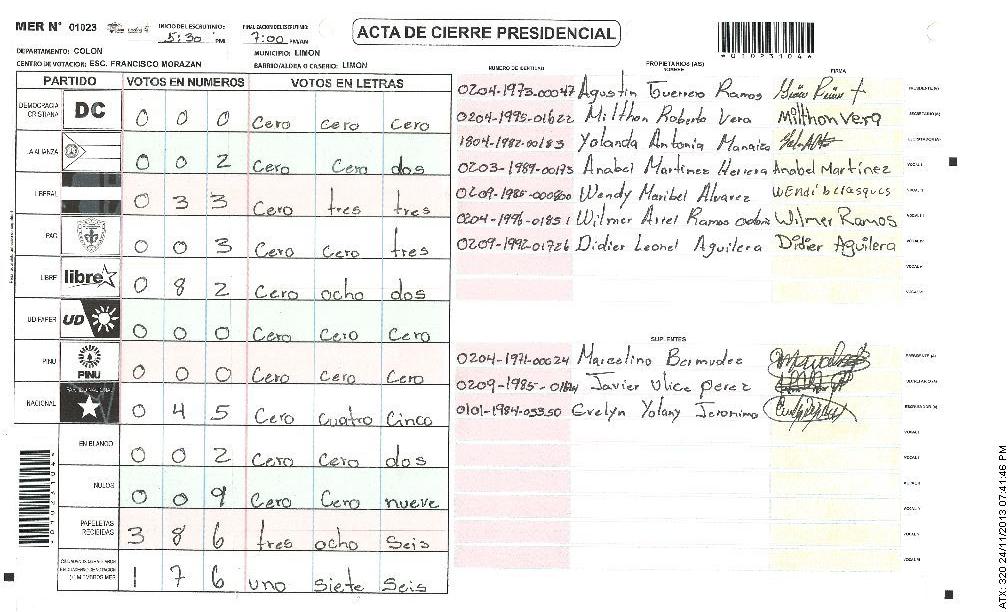 MER N° 01023
INICIO DEL ESCRUTINIO: 5:30 PM
FINALIZACION DEL ESCRUTINIO: 7:00 PM/AM
ACTA DE CIERRE PRESIDENCIAL
*01023104*
DEPARTAMENTO: COLON
MUNICIPIO: LIMON
CENTRO DE VOTACION: ESC. FRANCISCO MORAZAN
BARRIO/ALDEA O CASERIO: LIMON
PARTIDO VOTOS EN NUMEROS VOTOS EN LETRAS
DEMOCRACIA CRISTIANA DC 0 0 0 Cero Cero Cero
LA ALIANZA 0 0 2 Cero Cero dos
LIBERAL 0 3 3 Cero tres tres
PAC 0 0 3 Cero Cero tres
LIBRE libre 0 8 2 Cero ocho dos
UD/FAPER UD 0 0 0 Cero Cero Cero
PINU PINU 0 0 0 Cero Cero Cero
NACIONAL 0 4 5 Cero Cuatro Cinco
EN BLANCO 0 0 2 Cero Cero dos
NULOS 0 0 9 Cero Cero nueve
PAPELETAS RECIBIDAS 3 8 6 tres ocho Seis
1 7 6 uno siete Seis
NUMERO DE IDENTIDAD PROPIETARIOS (AS) NOMBRE FIRMA
0204-1973-00047 Agustin Guerrero Ramos PRESIDENTE (A)
0204-1995-01622 Milthon Roberto Vera Milthon Vera SECRETARIO (A)
1804-1982-00183 Yolanda Antonia ESCRUTADOR (A)
0203-1989-00193 Anabel Martinez Herrera Anabel Martínez VOCAL I
0209-1985-000800 Wendy Maribel Alvarez VOCAL II
0204-1996-01851 Wilmer Ariel Ramos Wilmer Ramos VOCAL III
0209-1992-01726 Didier Leonel Aguilera Didier Aguilera VOCAL IV
VOCAL V
SUPLENTES
0204-1971-00024 Marcelino Bermudez PRESIDENTE (A)
Javier Ulice perez SECRETARIO (A)
0101-1984-03350 Evelyn Yolany Jeronimo ESCRUTADOR (A)
VOCAL I
VOCAL II
VOCAL III
VOCAL IV
VOCAL V
ATX: 320 24/11/2013 07:41:46 PM